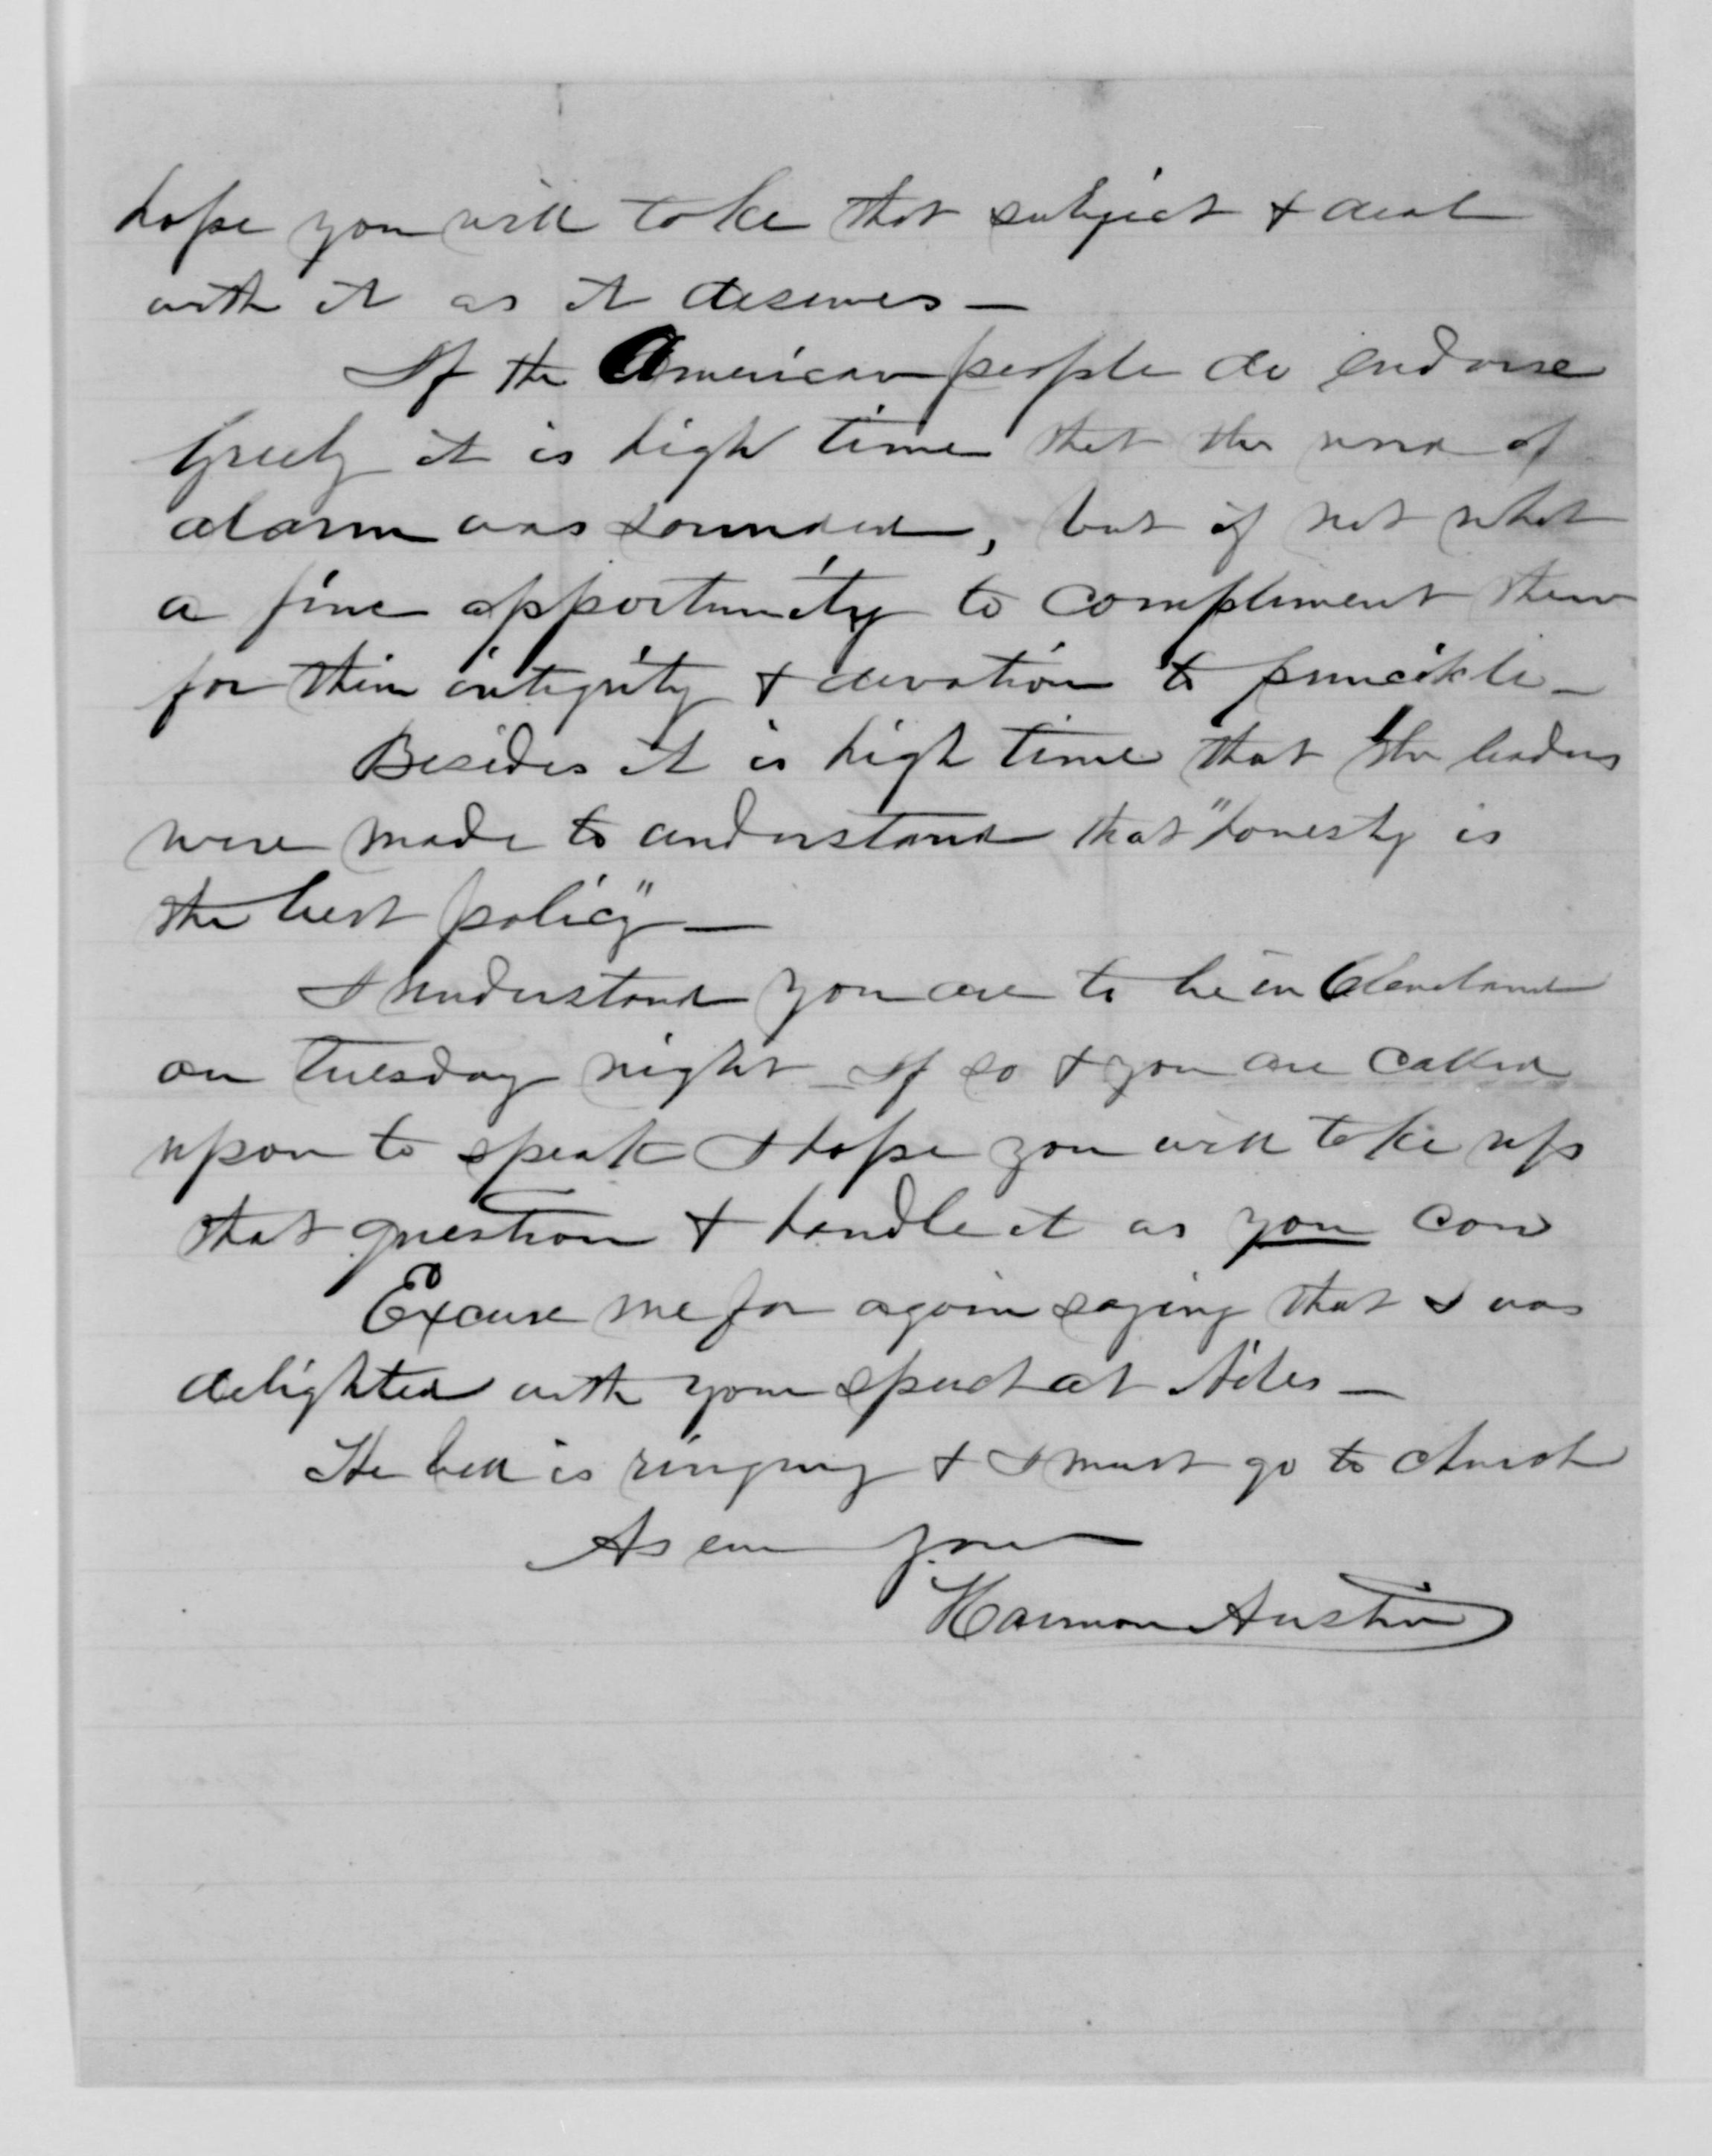 hope you will take that subject & deal
with it as it deserves —
If the American people do endorse
Greely it is high time that the word of
alarm was sounded, but if not what
a fine opportunity to compliment them
for their integrity & devotion to principle —
Besides it is high time that the leaders
were made to understand that "honesty is
the best policy" —
I understand you are to be in Cleveland
on Tuesday night — If so & you are called
upon to speak I hope you will take up
that question & handle it as you can
Excuse me for again saying that I was
delighted with your speech at Niles —
The bell is ringing & I must go to church
As ever yours
Harmon Austin